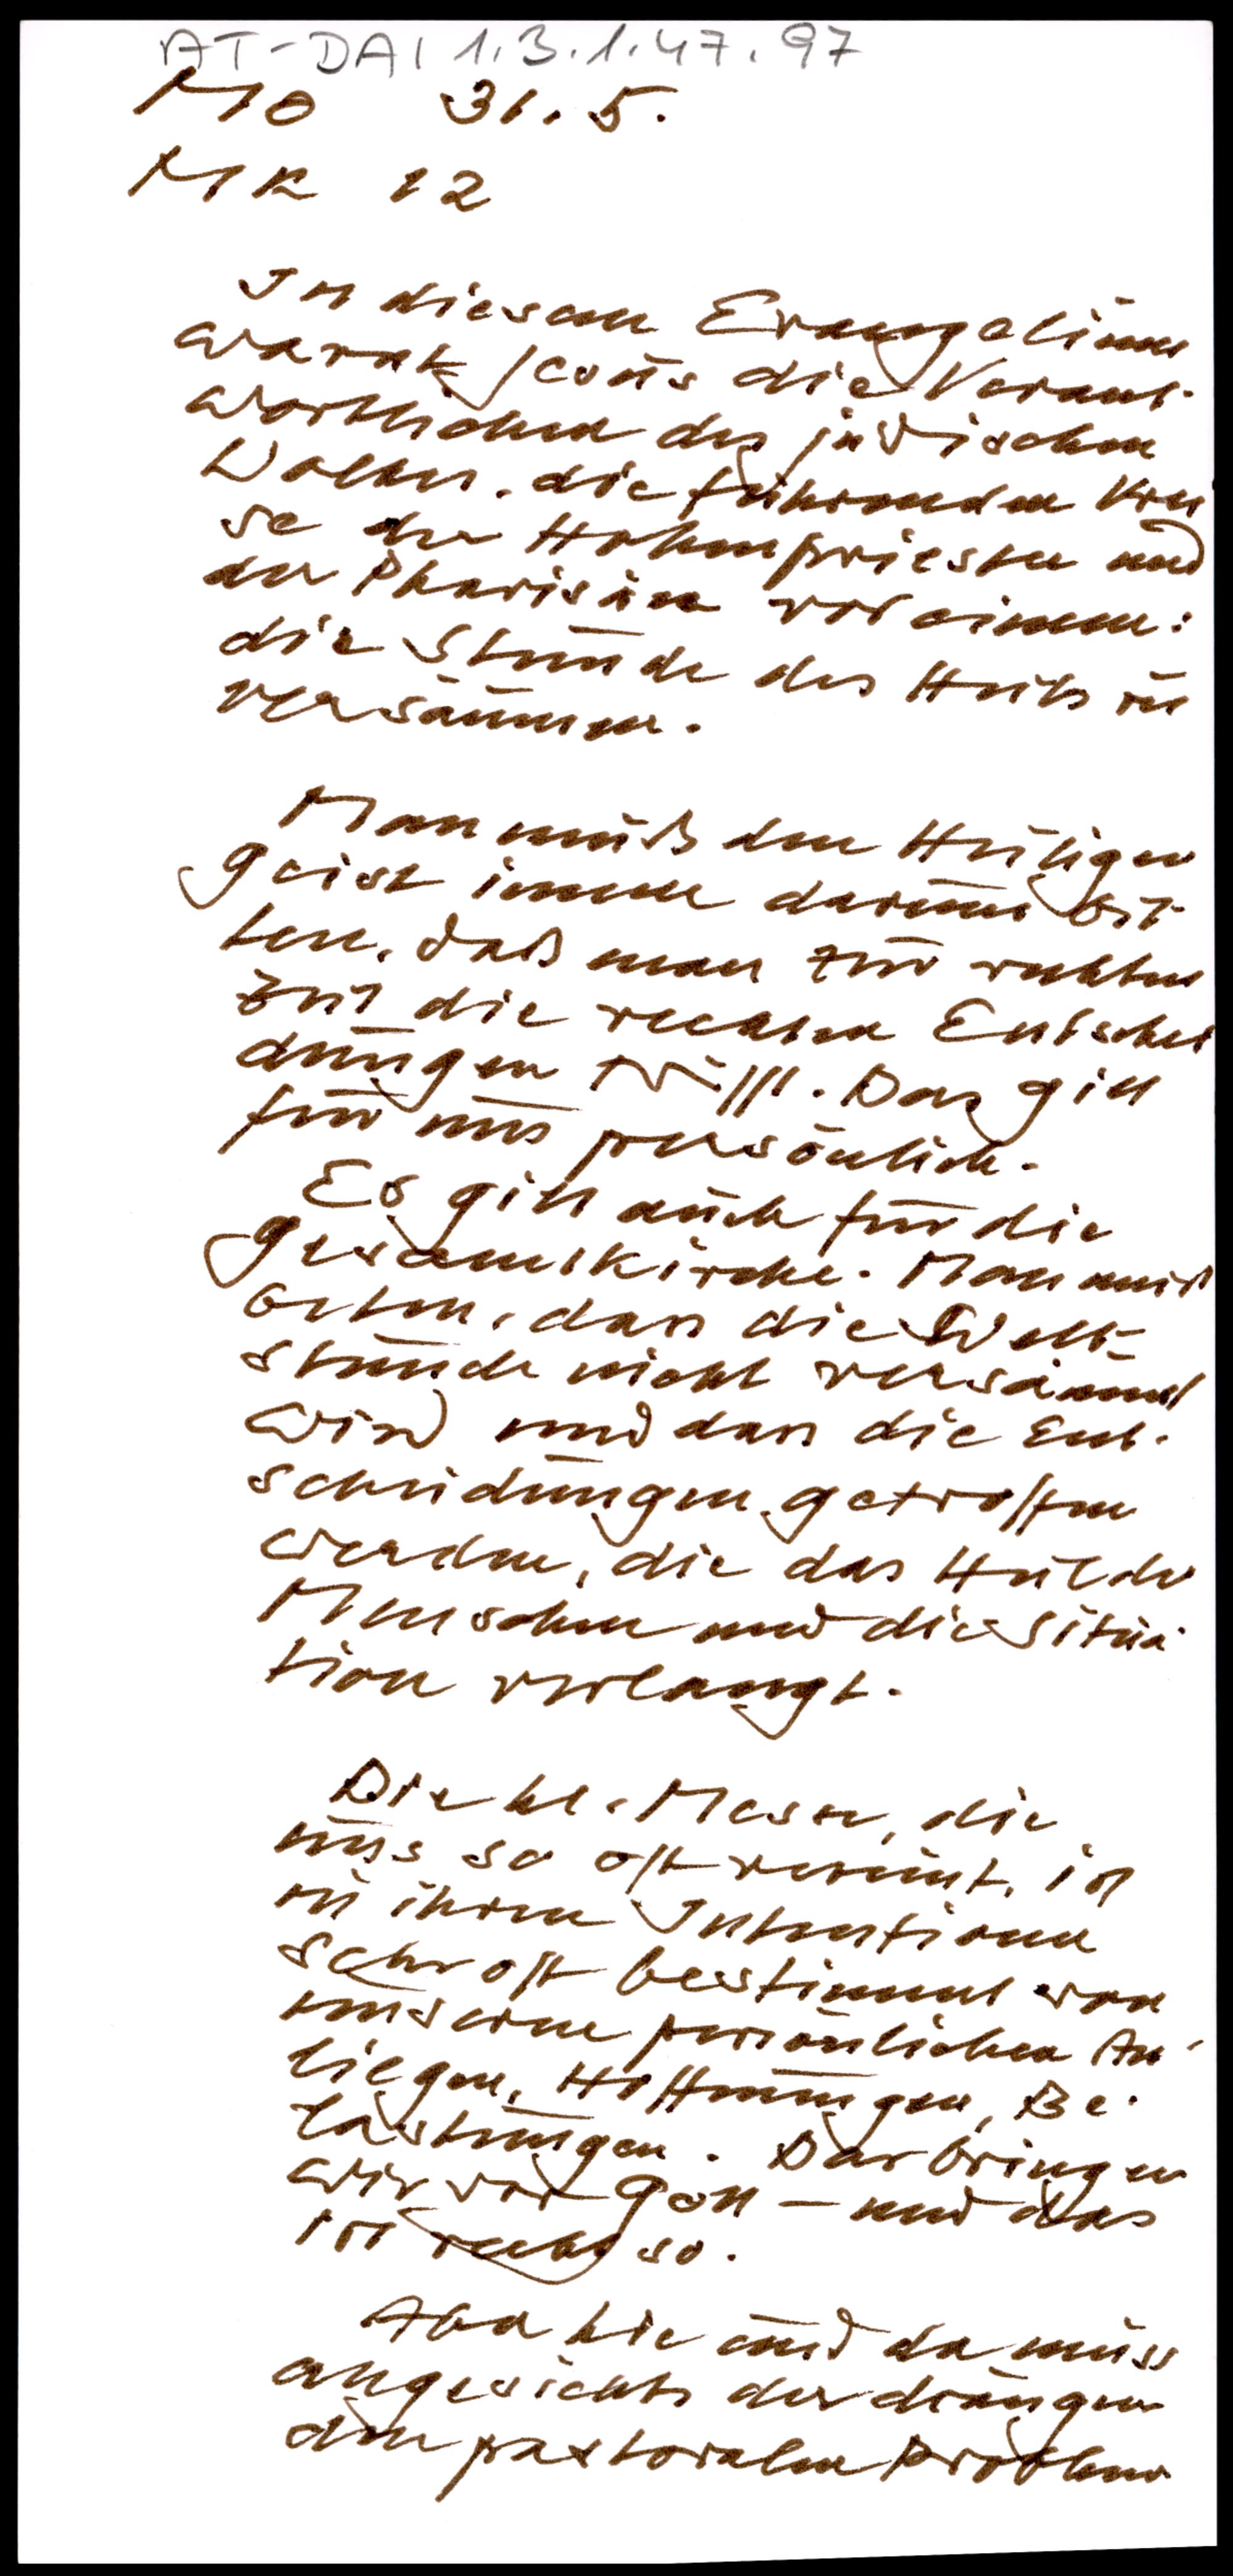 AT-DAI 1.3.1.47.97
MO 31.5.
MK 12
In diesem Evangelium
warnt Jesus die Verant-
wortlichen des jüdischen
Volkes, die führenden Krei
se der Hohenpriester und
der Pharisäer vor einem:
die Stunde des Heils zu
versäumen.
Man muß den Heiligen
Geist immer darum bit-
ten, daß man zur rechten
Zeit die rechten Entschei
dungen trifft. Das gilt
für uns persönlich.
Es gilt auch für die
Gesamtkirche. Man muß
beten, dass die Welt-
stunde nicht versäumt
wird und dass die Ent-
scheidungen getroffen
werden, die das Heil der
Menschen und die Situa-
tion verlangt.
Die hl. Messe, die
uns so oft vereint, ist
in ihren Intentionen
sehr oft bestimmt von
unseren persönlichen An-
liegen, Hoffnungen, Be-
lastungen. Das bringen
wir vor Gott – und das
ist recht so.
Aber hie und da muss
angesichts der drängen
den pastoralen Probleme